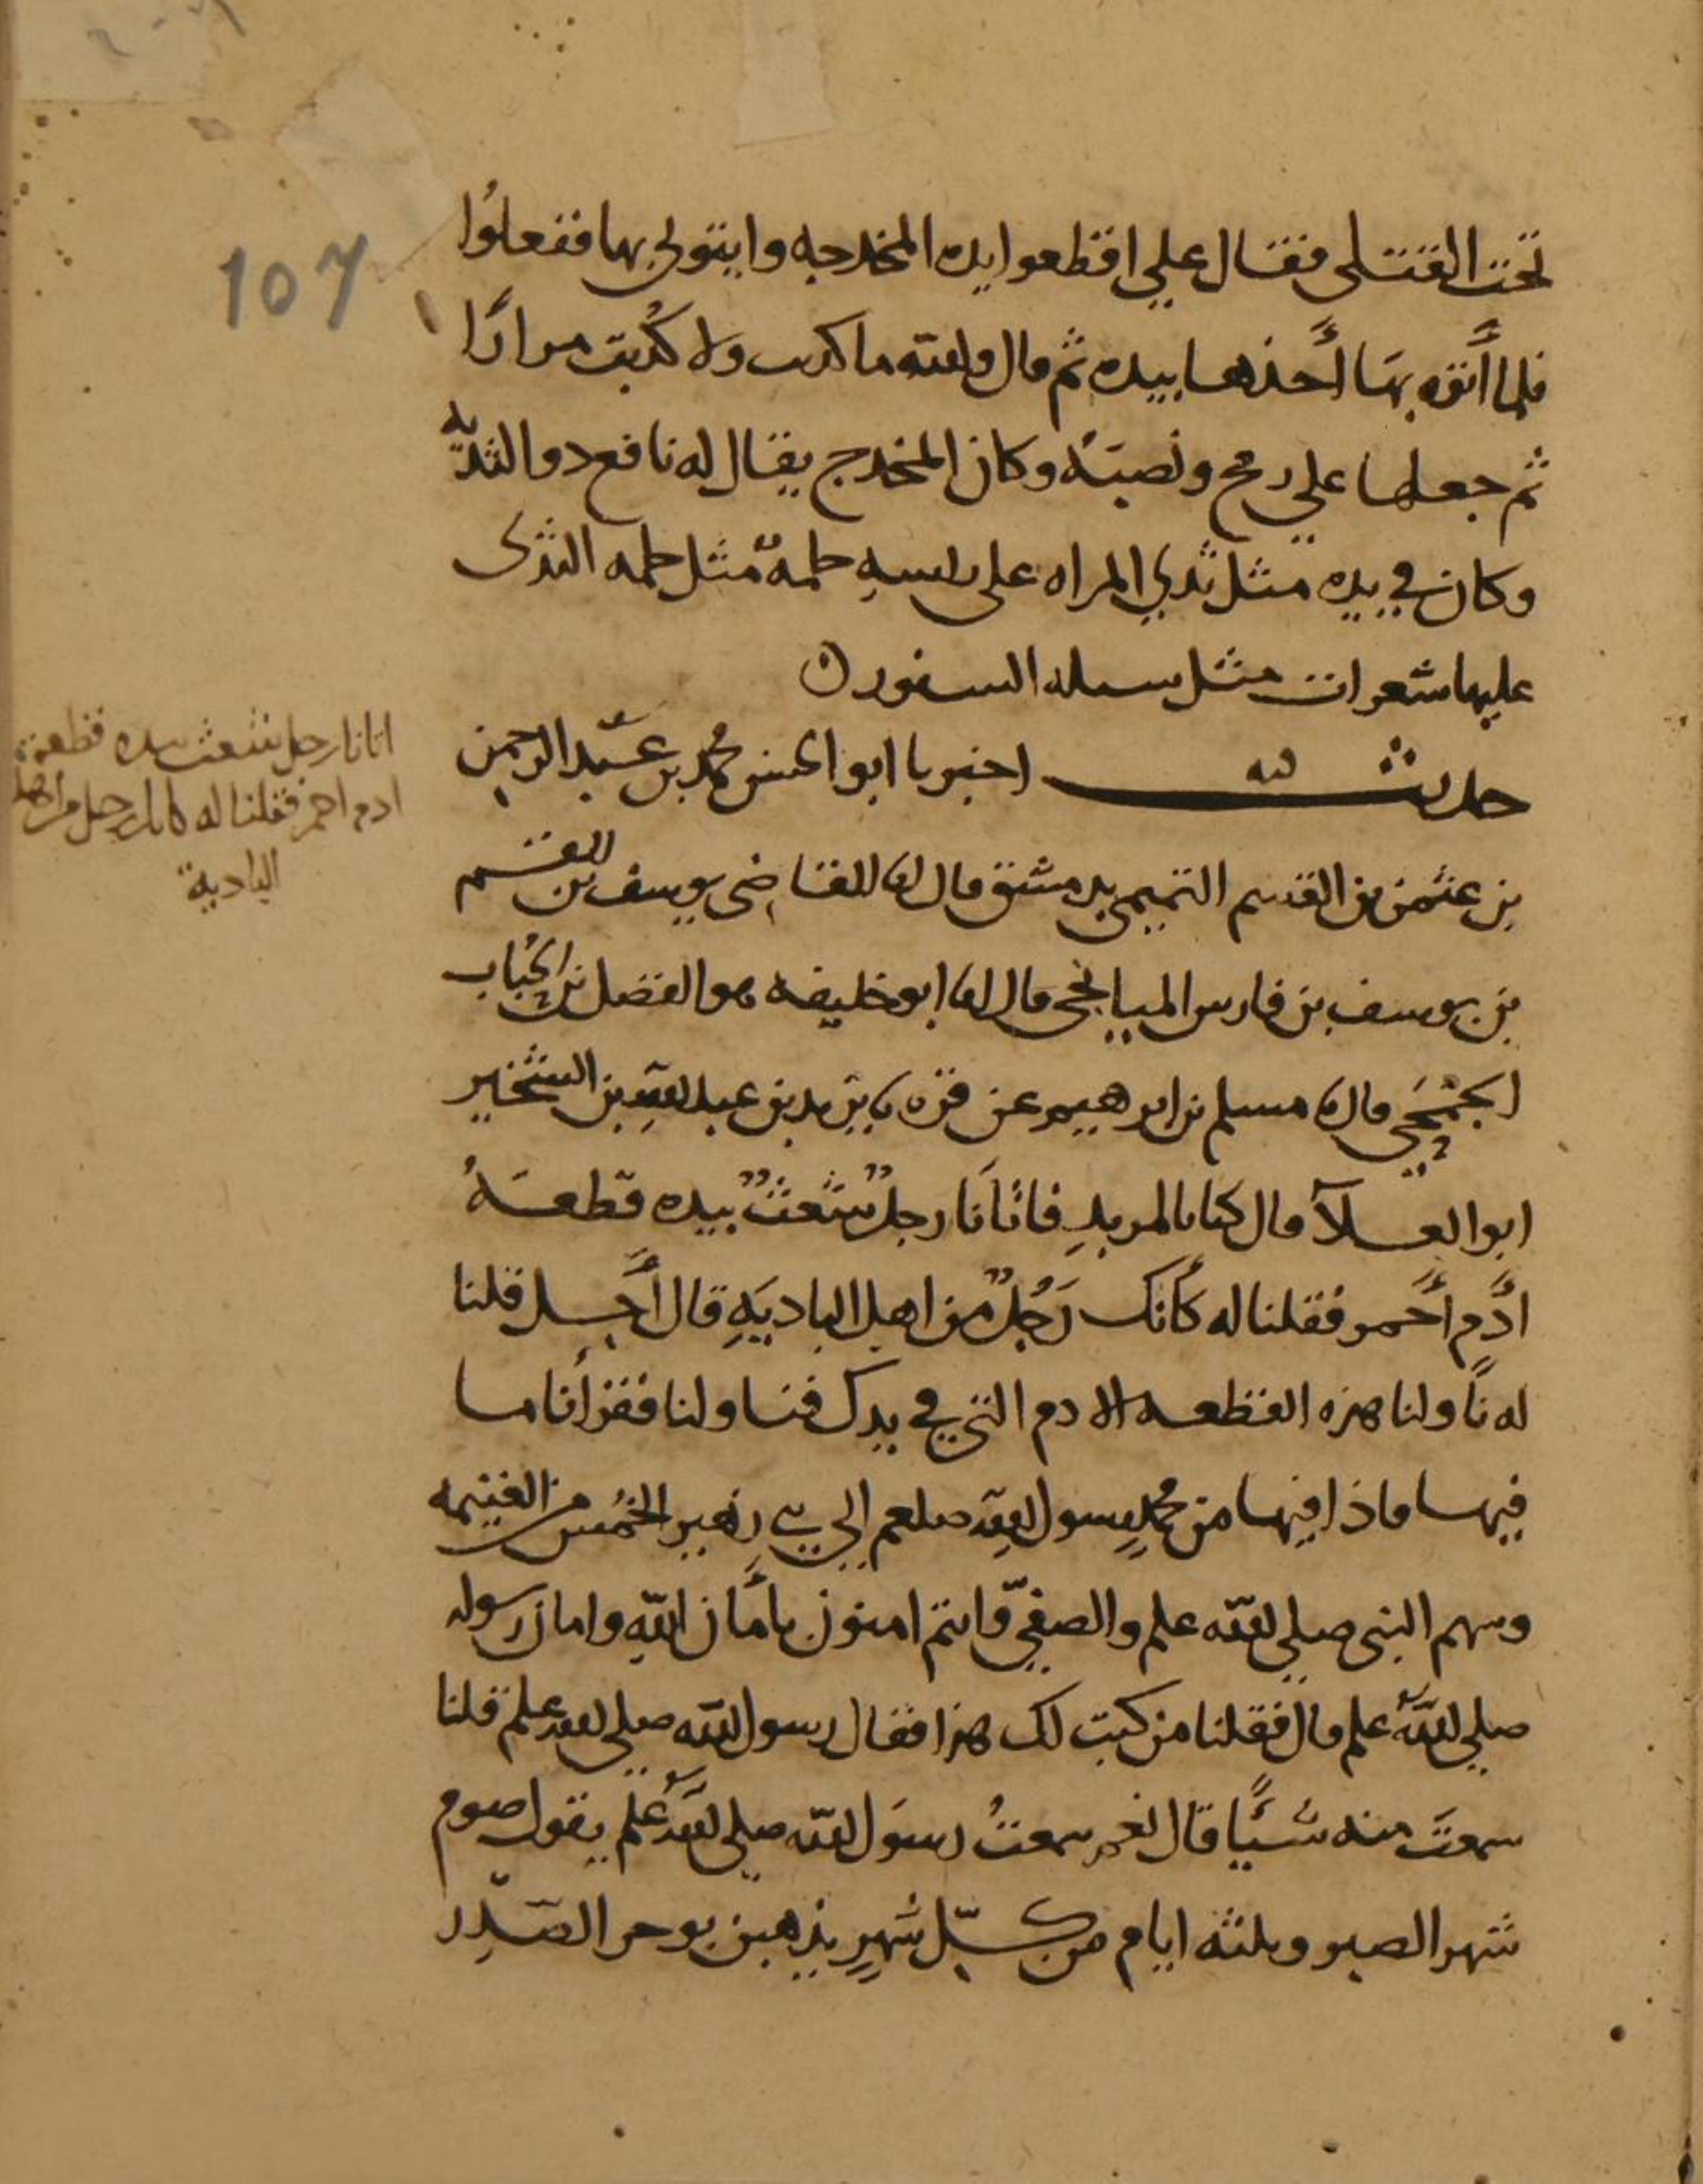 107
تحت القتلى فقال علي اقطعوا يده المخدجه وايتوني بها ففعلوا
فلما أتوه بها أخذها بيده ثم قال والله ما كذبت ولا كُذبت مرارًا
ثم جعلها علي رمح ونصبه وكان المخدج يقال له نافع ذو الثديّه
وكان في يده مثل ثدي المراه على راسه حلمة مثل حلمه الثدى
عليها شعرات مثل سبله السنور
حديث اخبرنا ابو الحسن محمد بن عبد الرحمن
بن عثمن بن القسم التميمي بدمشق قال انا القاضي يوسف بن القسم
بن يوسف بن فارس الميانجي قال انا ابو خليفه هو الفضل بن الحُباب
الجمَحي قال نا مسلم بن ابرهيم عن قرة نا يزيد بن عبد الله بن الشخير
ابو العلآ قال كنا بالمربدِ فاتَانَا رجلٌ شعثٌ بيده قطعَهُ
ادَمٍ أحمر فقلنا له كأنك رَجُلٌ من اهل الباديَهِ قال أجل قلنا
له نَاولنا هذه القطعه الادم التي في يدك فناولنا فقرأنا ما
فيها فاذا فيها من محمدٍ رسول اللهِ صلعم الي بني زهير الخُمُس من الغنيمه
وسهم النبي صلي الله علم والصفيّ وانتم امنون بأمان اللهِ وامان رسوله
صلي اللهُ علم قال فقلنا من كتب لك هذا فقال رسول الله صلي الله علم قلنا
سمعتَ منه شيًا قال نعم سمعتُ رسوَل الله صلي الله علم يقول صوم
شهر الصبر وثلثه ايام من كلّ شهرٍ يذهبن بوحر الصّدرِ
اتانا رجل شعث بيده قطعة
ادم احمر فقلنا له كانك رجل من اهل
البادية